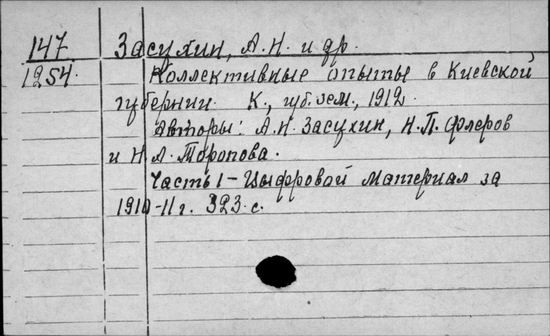 147 Засухин, А.Н. и др.
1254. Коллективные опыты в Киевской
губернии. К., губ.зем., 1912.
Авторы: А.Н. Засухин, Н.П. Флеров
и Н.А. Торопова.
Часть I – Цыфровой материал за
1910-11 г. 323 с.